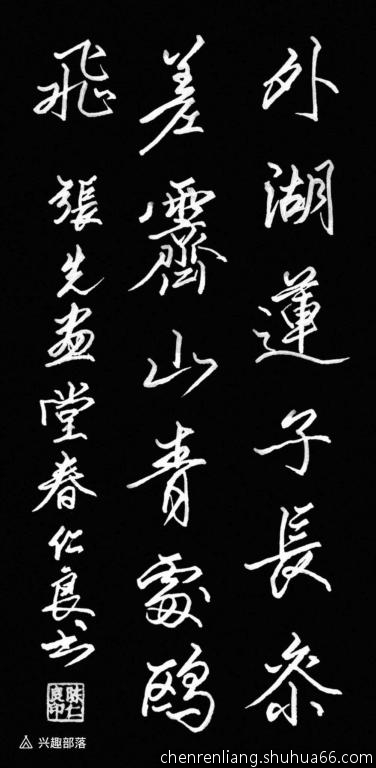 外湖蓮子長參
差霽山青處鷗
飛 張先畫堂春仁良书
陈仁良印
兴趣部落
chenrenliang.shuhua66.com